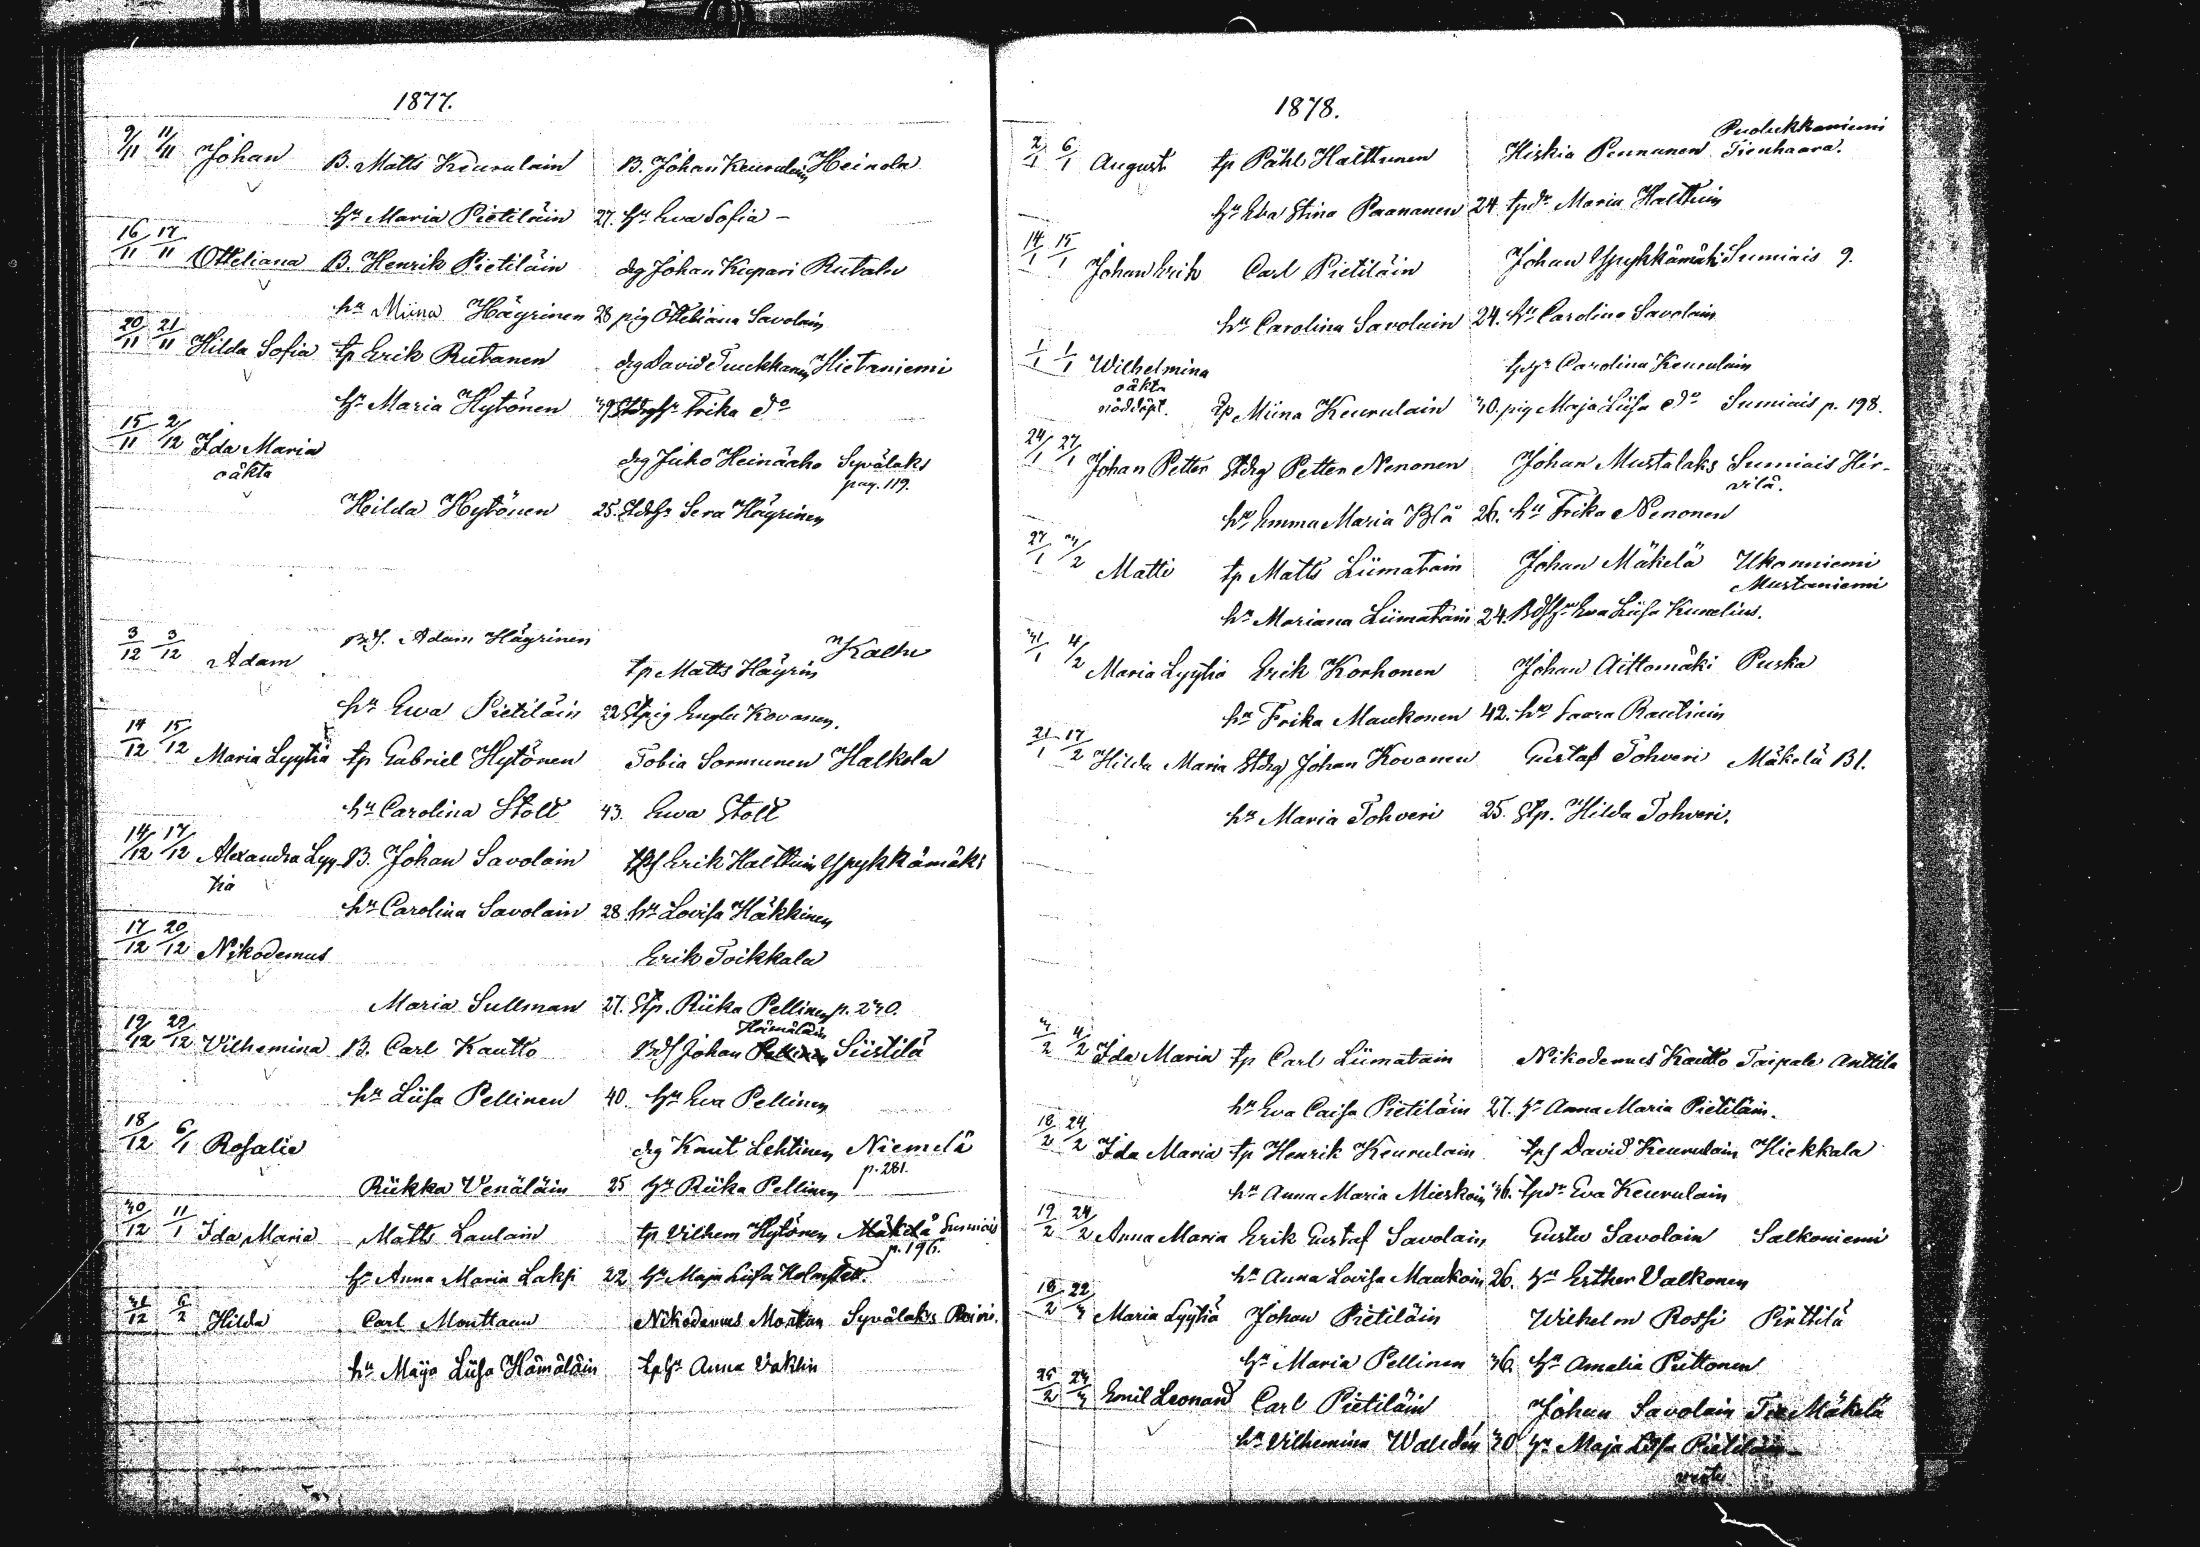 1877.
9/11 11/11 Johan B. Matts Keurulain B. Johan Keurulain Heinola
Hu Maria Pietiläin 27. Hu Eva Sofia –
16/11 17/11 Otteliana B. Henrik Pietiläin drg Johan Kupari Rutalu
hu Miina Häyrinen 28 pig Otteliana Savolain
20/11 21/11 Hilda Sofia tp Erik Rutanen drg David Tuukkanen Hietaniemi
Hu Maria Hytönen 39 Frika do
15/11 2/12 Ida Maria drg Juho Heinäaho Syvälaks
oäkta pag. 119.
Hilda Hytönen 25. Sera Häyrinen
3/12 3/12 Adam Bdf. Adam Häyrinen Kalhu
tp Matts Häyrin
hu Ewa Pietiläin 22 Stpig Kovanen.
14/12 15/12 Maria Lyytia tp Gabriel Hytönen Tobia Sormunen Halkola
hu Carolina Stolt 43. Ewa Stolt
14/12 17/12 Alexandra Lyy- B. Johan Savolain Erik Halttuin Ypykkämäki
tia
hu Carolina Savolain 28 hu Lovisa Häkkinen
17/12 20/12 Nikodemus Erik Toikkala
Maria Sullman 27. Stp. Riika Pellinen p. 230.
Hämäläin
19/12 29/12 Vilhemina B. Carl Kautto Bdf Johan Siistilä
hu Liisa Pellinen 40. Hu Eva Pellinen
18/12 6/1 Rosalia drg Knut Lehtinen Niemelä
Riikka Venäläin 25 Hu Riika Pellinen p. 281.
30/12 11/1 Ida Maria Matts Laulain tp Vilhem Hytönen Mäkelä Sumiais
p. 196.
Hu Anna Maria Laksi 22 Hu Maja Liisa
31/12 6/2 Hilda Carl Monttann Nikodemus Syvälaks
hu Maija Liisa Hämäläin tphu Anna
1878.
Puolukkaniemi
2/1 6/1 August tp Påhl Halttunen Hiskia Pennanen Tienhaara.
Hu Eva Stina Paananen 24 tpdr Maria Halttuin
14/1 15/1 Johan Erik Carl Pietiläin Johan Ypykkämäki Sumiais 9.
hu Carolina Savolain 24. hu Carolina Savolain
1/1 1/1 Wilhelmina Carolina Keurulain
oäkta
nöddöpt. Miina Keurulain 30. pig Maja Liisa do Sumiais p. 198.
24/1 27/1 Johan Petter Stdrg Petter Nenonen Johan Mustalaks Sumiais Hir-
vilä.
hu Emma Maria Blå 26. hu Frika Nenonen
27/1 3/2 Matti tp Matts Liimatain Johan Mäkelä Ukonniemi
Mustaniemi
hu Mariana Liimatain 24. Eva Liisa Kunelius.
31/1 4/2 Maria Lyytia Erik Korhonen Johan Aittomäki Puska
hu Frika Maukonen 42. hu Saara Rautiain
21/1 17/2 Hilda Maria Stdrg Johan Kovanen Gustaf Tohveri Mäkelä Bl.
hu Maria Tohveri 25. Stp. Hilda Tohveri.
3/2 4/2 Ida Maria tp Carl Liimatain Nikodemus Kautto Taipale Anttila
hu Eva Caisa Pietiläin 27. Hu Anna Maria Pietiläin.
18/2 24/2 Ida Maria tp Henrik Keurulain tpf David Keurulain Hiekkala
hu Anna Maria Mieskoin 36. tpdr Eva Keurulain
19/2 24/2 Anna Maria Erik Gustaf Savolain Gustav Savolain Salkoniemi
hu Anna Lovisa Maukoin 26. Hu Esther Valkonen
18/2 22/3 Maria Lyytia Johan Pietiläin Wilhelm Rossi Pirttilä
Hu Maria Pellinen 36. Hu Amalia Puttonen
25/2 24/3 Emil Leonard Carl Pietiläin Johan Savolain Mäkelä
hu Vilhemina Waldén 30 Hu Maja Liisa Pietiläin